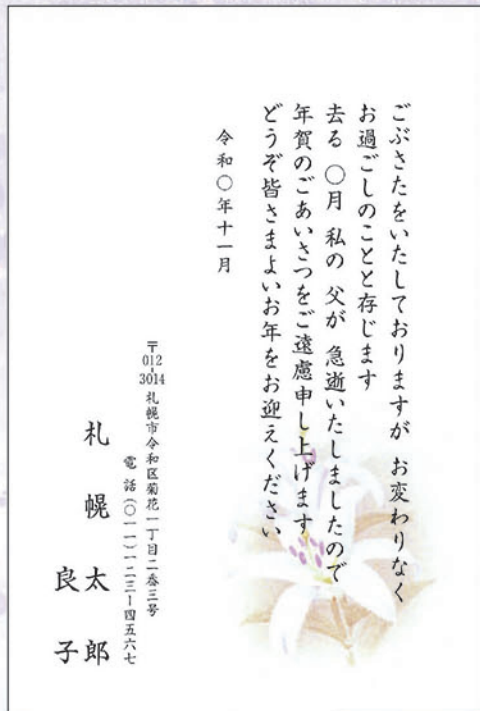 ごぶさたをいたしておりますが お変わりなく
お過ごしのことと存じます
去る 〇月 私の 父が 急逝いたしましたので
年賀のごあいさつをご遠慮申し上げます
どうぞ皆さまよいお年をお迎えください
令和〇年十一月
〒012-3014 札幌市令和区菊花一丁目二番三号
電話(〇一一)一二三ー四五六七
札幌太郎
良子